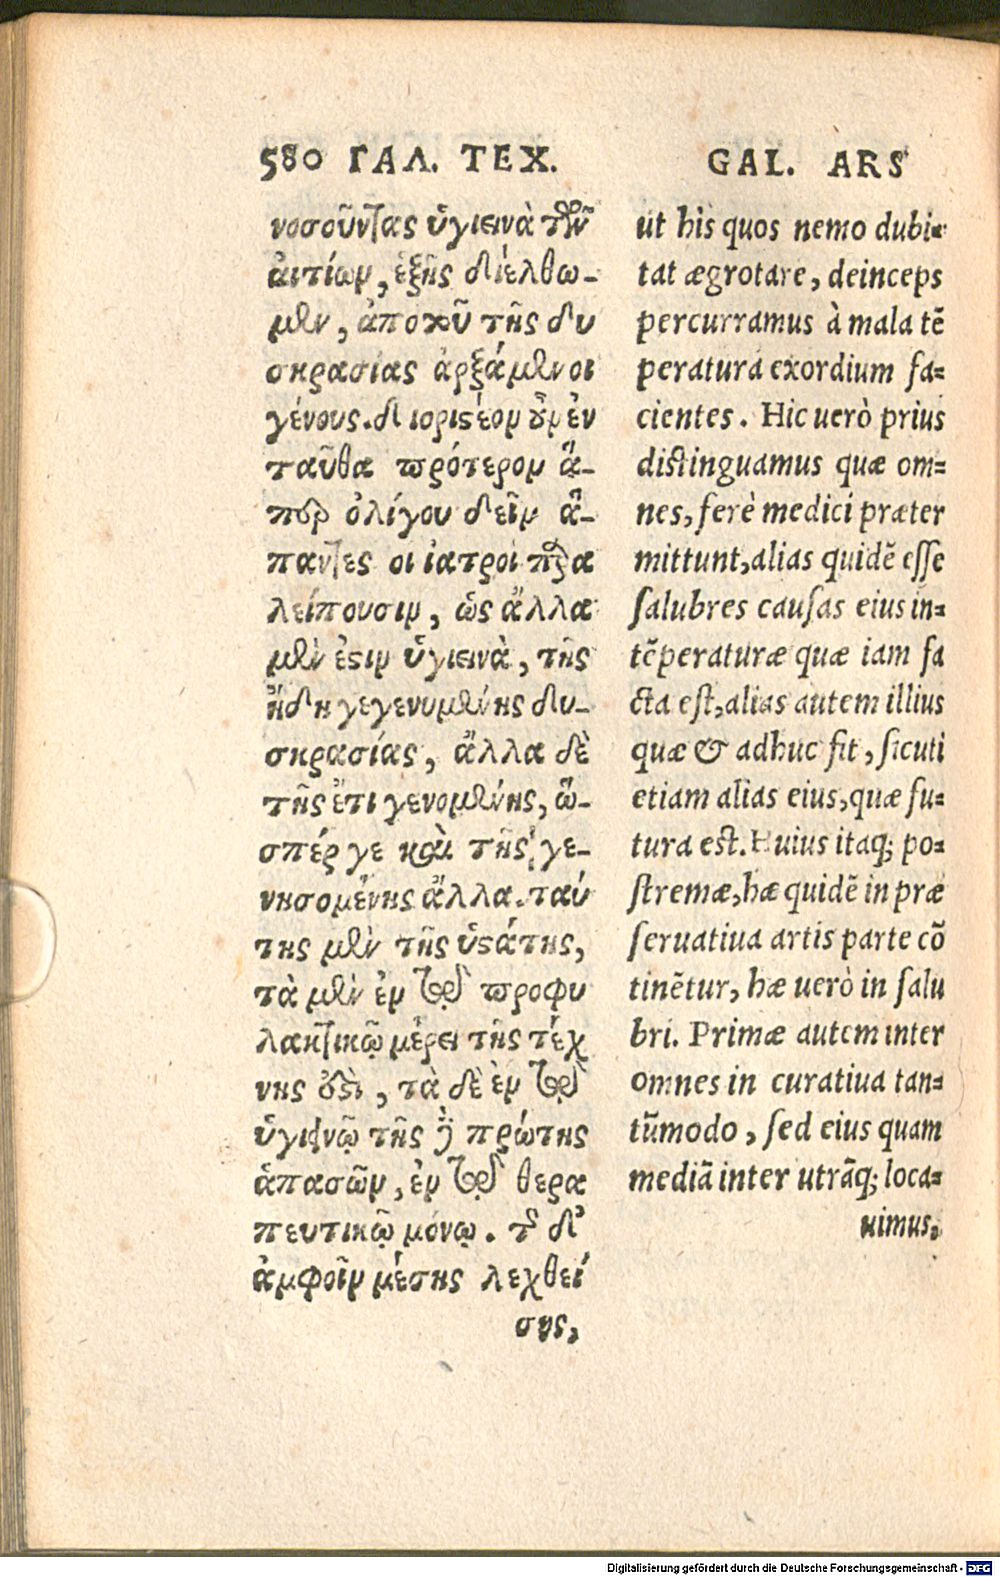 580 ΓΑΛ. ΤΕΧ.
νοσοῦντας ὑγιεινὰ τῶν
αἰτίων, ἑξῆς διέλθω-
μεν, ἀπὸ τοῦ τῆς δυ
σκρασίας ἀρξάμενοι
γένους. διοριστέον οὖν ἐν
ταῦθα πρότερον ἅ-
περ ὀλίγου δεῖν ἅ-
παντες οι ἰατροὶ παρα
λείπουσιν, ὡς ἄλλα
μὲν ἐστιν ὑγιεινὰ, τῆς
ἤδη γεγενυμένης δυ-
σκρασίας, ἄλλα δὲ
τῆς ἔτι γενομένης, ὥ-
σπέρ γε καὶ τῆς γε-
νησομένης ἄλλα. ταύ
της μὲν τῆς ὑστάτης,
τὰ μὲν ἐν τῷ προφυ
λακτικῷ μέρει τῆς τέχ
νης ὅστι, τὰ δὲ ἐν τῷ
ὑγιεινῷ τῆς δὲ πρώτης
ἁπασῶν, ἐν τῷ θερα
πευτικῷ μόνῳ. τῆς δ᾽
ἀμφοῖν μέσης λεχθεί
σης,
GAL. ARS
ut his quos nemo dubi-
tat ægrotare, deinceps
percurramus à mala tẽ
peratura exordium fa-
cientes. Hic uerò prius
distinguamus quæ om-
nes, ferè medici præter
mittunt, alias quidẽ esse
salubres causas eius in-
tẽperaturæ quæ iam fa
cta est, alias autem illius
quæ & adhuc fit, sicuti
etiam alias eius, quæ fu-
tura est. Huius itaq; po-
stremæ, hæ quidẽ in præ
seruatiua artis parte cõ
tinẽtur, hæ uerò in salu
bri. Primæ autem inter
omnes in curatiua tan-
tũmodo, sed eius quam
mediã inter utrãq; loca-
uimus,
Digitalisierung gefördert durch die Deutsche Forschungsgemeinschaft - DFG